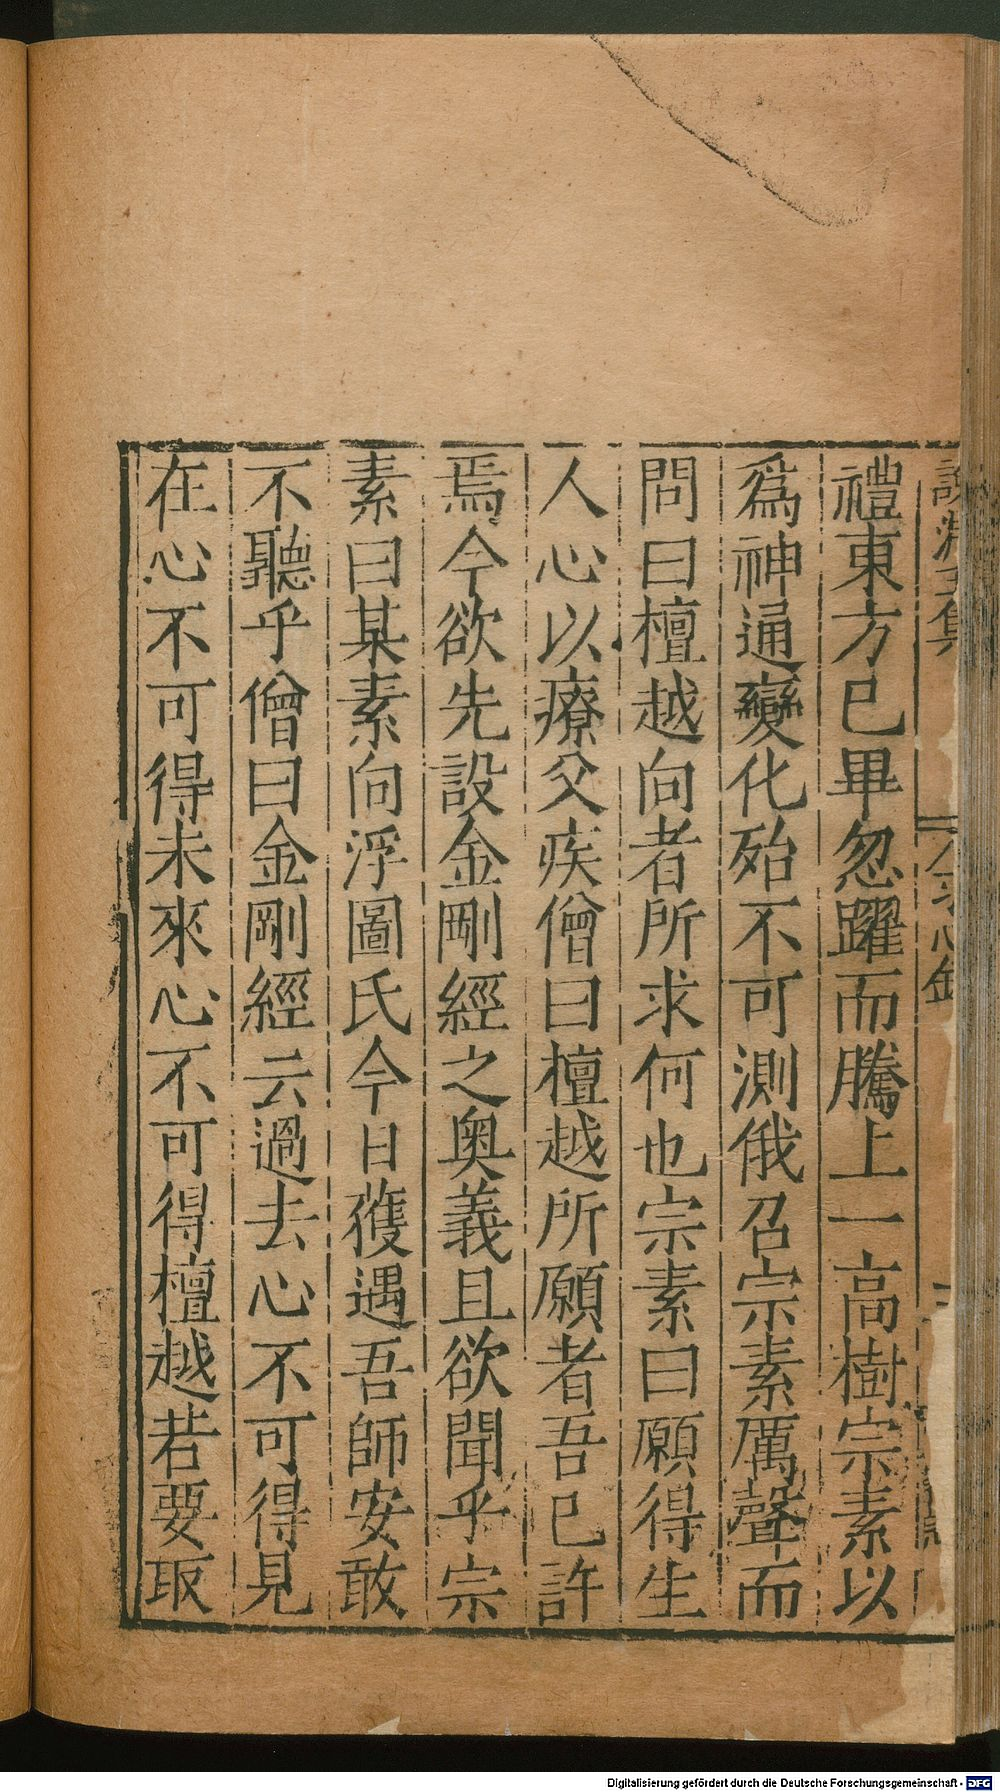 禮東方已畢忽躍而騰上一高樹宗素以
爲神通變化殆不可測俄召宗素厲聲而
問曰檀越向者所求何也宗素曰願得生
人心以療父疾僧曰檀越所願者吾已許
焉今欲先設金剛經之奧義且欲聞乎宗
素曰某素向浮圖氏今日獲遇吾師安敢
不聽乎僧曰金剛經云過去心不可得見
在心不可得未來心不可得檀越若要取
Digitalisierung gefördert durch die Deutsche Forschungsgemeinschaft - DFG